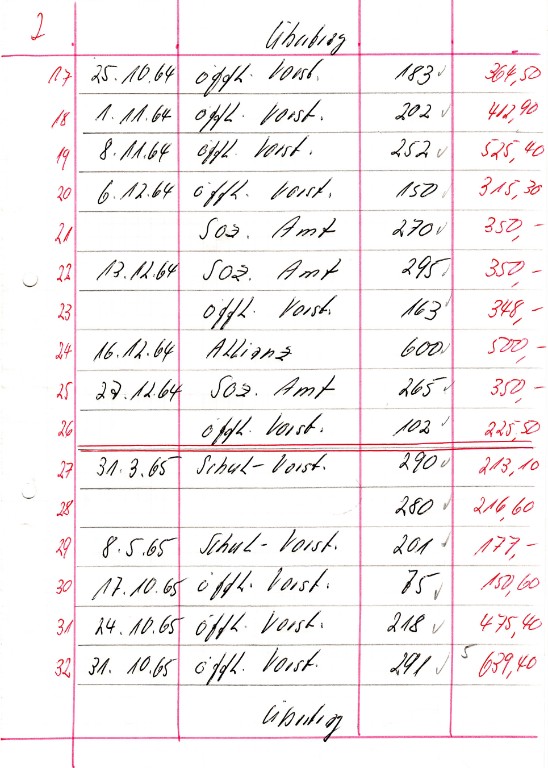 2
Übertrag
17 25.10.64 öffl. Vorst. 183 364,50
18 1.11.64 öffl. Vorst. 202 412,90
19 8.11.64 öffl. Vorst. 252 525,40
20 6.12.64 öffl. Vorst. 150 315,30
21 Soz. Amt 270 350,-
22 13.12.64 Soz. Amt 295 350,-
23 öffl. Vorst. 163 348,-
24 16.12.64 Allianz 600 500,-
25 27.12.64 Soz. Amt 265 350,-
26 öffl. Vorst. 102 225,50
27 31.3.65 Schul-Vorst. 290 213,10
28 280 216,60
29 8.5.65 Schul-Vorst. 201 177,-
30 17.10.65 öffl. Vorst. 75 150,60
31 24.10.65 öffl. Vorst. 218 475,40
32 31.10.65 öffl. Vorst. 291 5 639,40
Übertrag